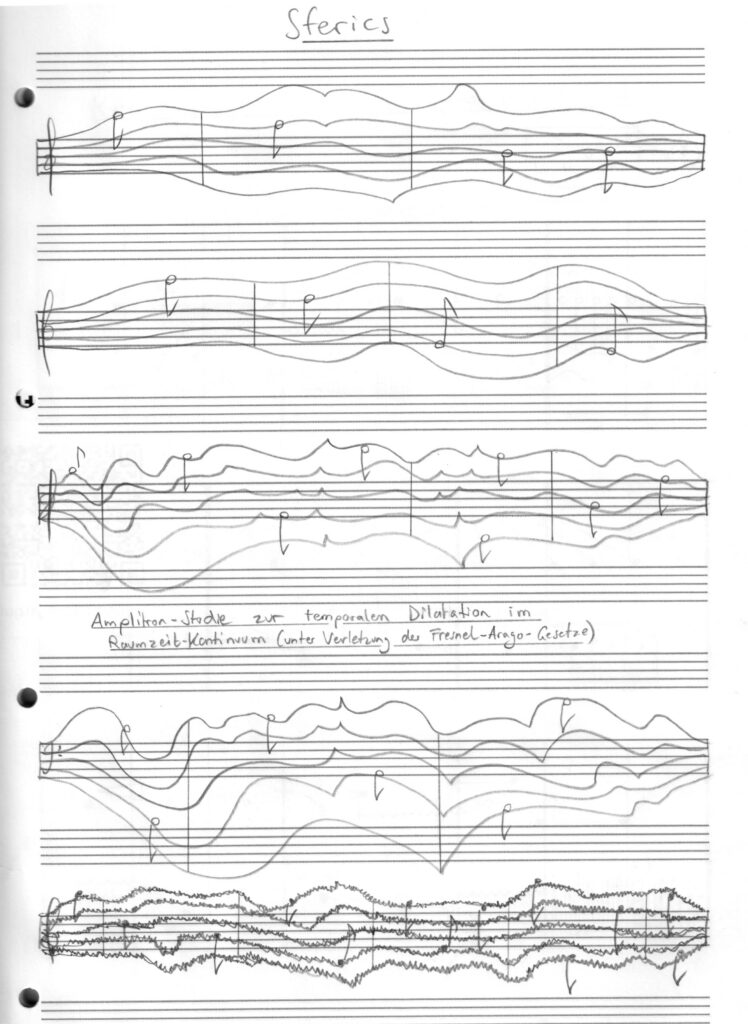 Sferics
Amplitron-Studie zur temporalen Dilatation im
Raumzeit-Kontinuum (unter Verletzung der Fresnel-Arago-Gesetze)